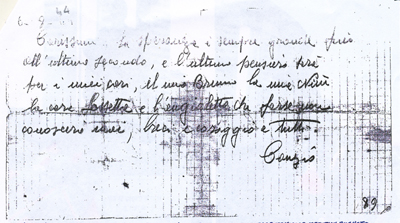 6. 9. 44
Carissimi. La speranza è sempre grande fino
all'ultimo secondo, e l'ultimo pensiero sarà
per i miei cari, il mio Bruno la mia Ninì
la cara e l'angioletto che forse non
conoscerò mai, baci e coraggio a tutti.
Canzio
89